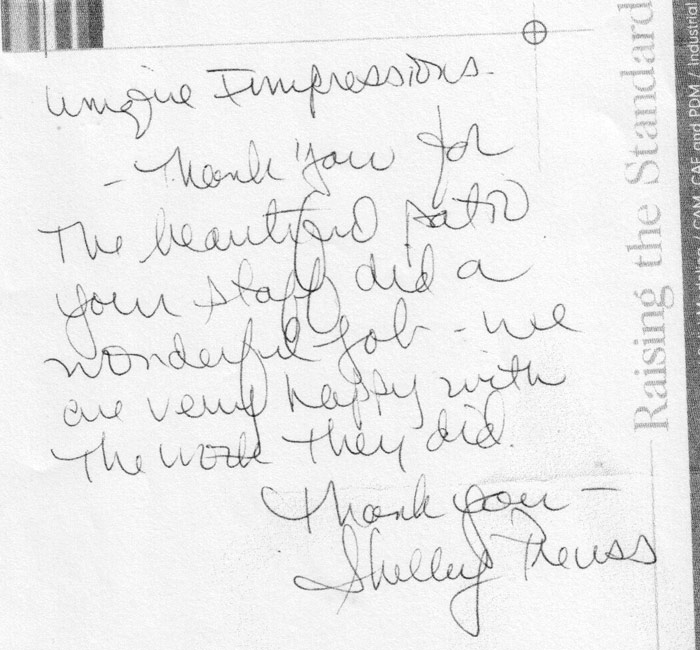 Unique Impressions.
- Thank you for
The beautiful patio
your staff did a
wonderful job - we
are very happy with
The work they did.
Thank you -
Shelley Preuss
Raising the Standard
/ CAM, CAE and PDM / Industrial